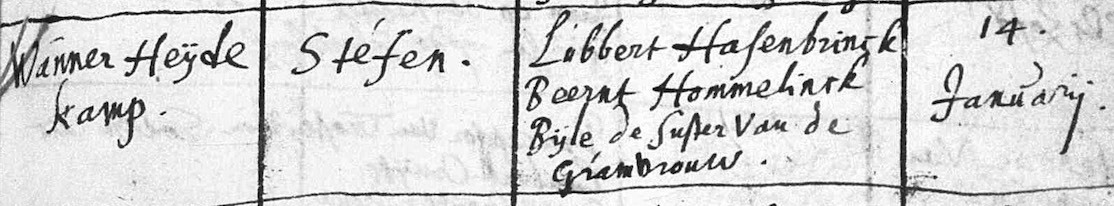 Wanner Heÿde
kamp.
Stefen.
Lubbert Hasenbrinck
Beernt Hommelinck
Bÿle de suster van de
Grambrouw.
14.
Januarij.